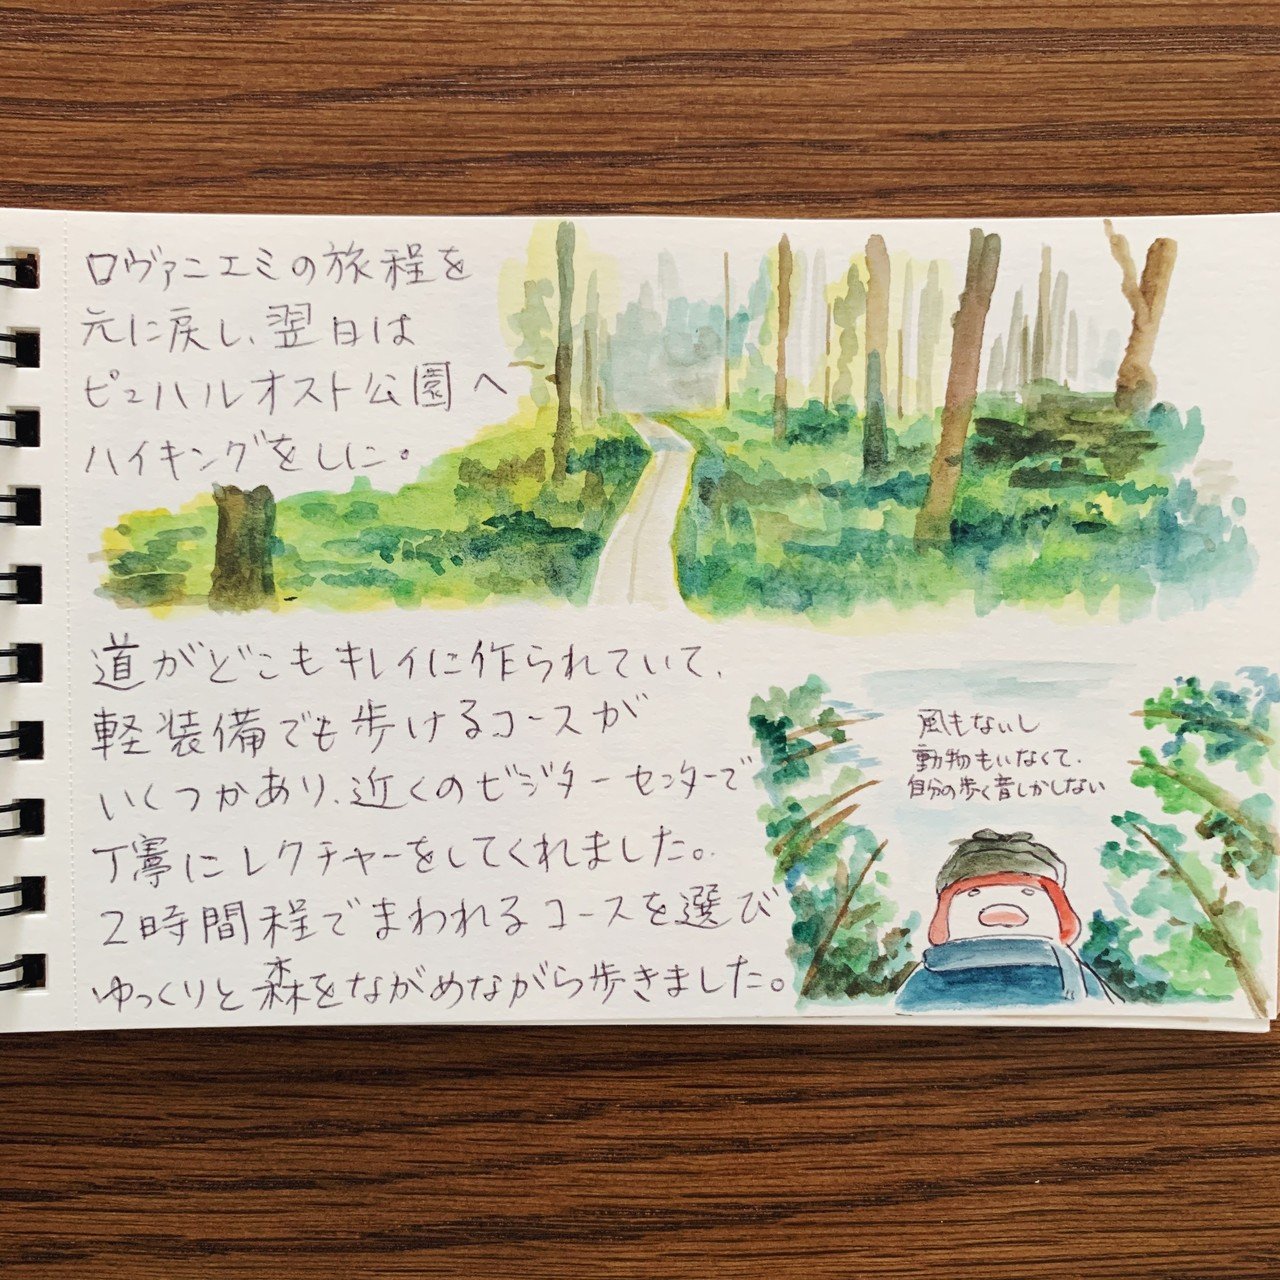 ロヴァニエミの旅程を
元に戻し、翌日は
ピュハルオスト公園へ
ハイキングをしに。
道がどこもキレイに作られていて、
軽装備でも歩けるコースが
いくつかあり、近くのビジターセンターで
丁寧にレクチャーをしてくれました。
2時間程でまわれるコースを選び
ゆっくりと森をながめながら歩きました。
風もないし
動物もいなくて、
自分の歩く音しかしない